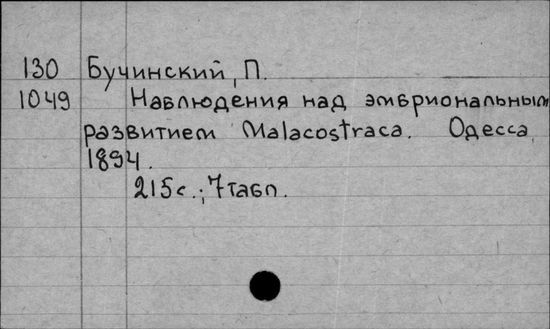 130 Бучинский, П.
1049 Наблюдения над эмбриональным
развитием Malacostraca. Одесса,
1894.
215с.; 7табл.